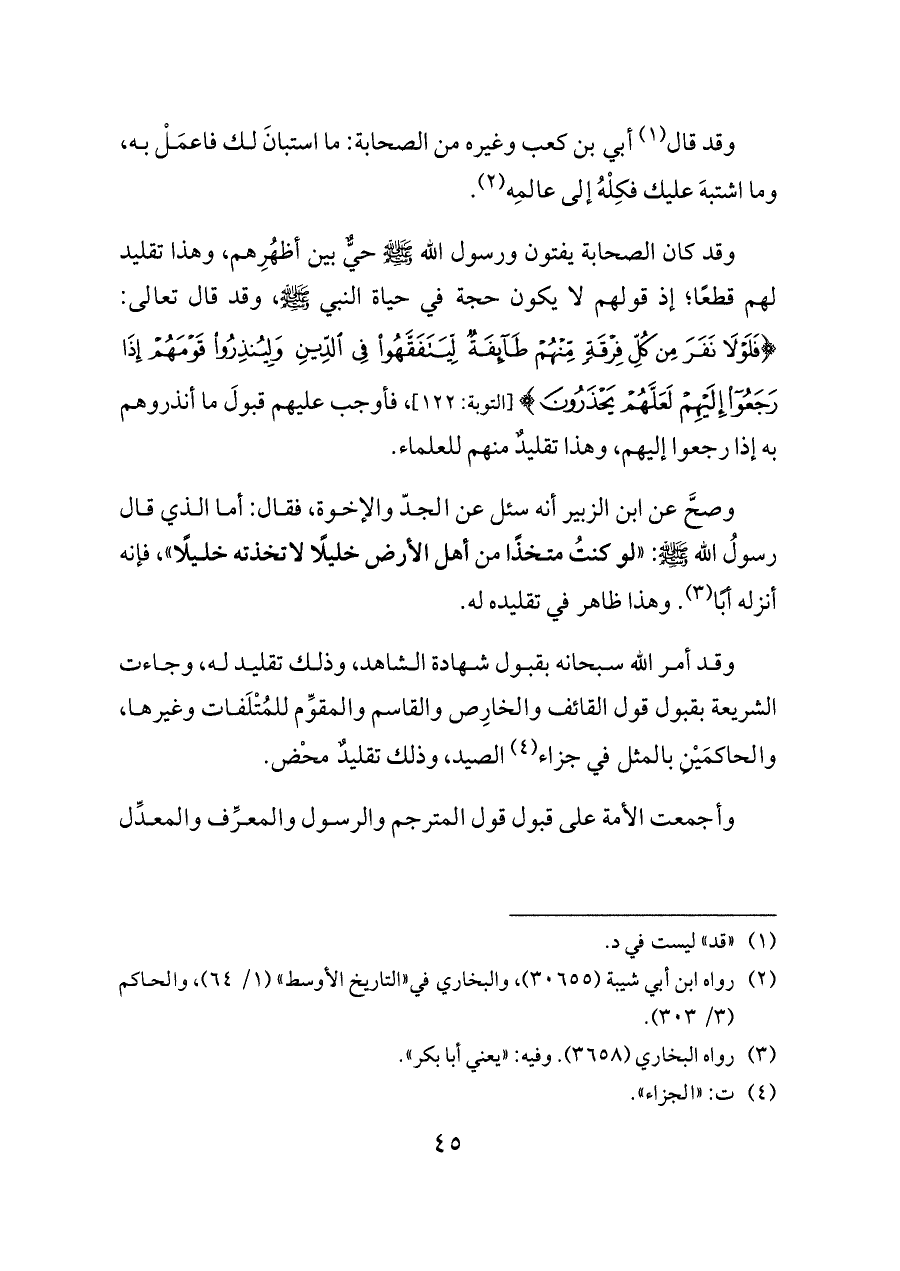 وقد قال(١) أبي بن كعب وغيره من الصحابة: ما استبانَ لك فاعمَلْ به،
وما اشتبهَ عليك فكِلْهُ إلى عالمِه(٢).
وقد كان الصحابة يفتون ورسول الله ﷺ حيٌّ بين أظهُرِهم، وهذا تقليد
لهم قطعًا؛ إذ قولهم لا يكون حجة في حياة النبي ﷺ، وقد قال تعالى:
﴿فَلَوْلَا نَفَرَ مِن كُلِّ فِرْقَةٍ مِّنْهُمْ طَآئِفَةٌ لِّيَتَفَقَّهُواْ فِى ٱلدِّينِ وَلِيُنذِرُواْ قَوْمَهُمْ إِذَا
رَجَعُوٓاْ إِلَيْهِمْ لَعَلَّهُمْ يَحْذَرُونَ﴾ [التوبة: ١٢٢]، فأوجب عليهم قبولَ ما أنذروهم
به إذا رجعوا إليهم، وهذا تقليدٌ منهم للعلماء.
وصحَّ عن ابن الزبير أنه سئل عن الجدّ والإخوة، فقال: أما الذي قال
رسولُ الله ﷺ: «لو كنتُ متخذًا من أهل الأرض خليلًا لاتخذته خليلًا»، فإنه
أنزله أبًا(٣). وهذا ظاهر في تقليده له.
وقد أمر الله سبحانه بقبول شهادة الشاهد، وذلك تقليد له، وجاءت
الشريعة بقبول قول القائف والخارِص والقاسم والمقوِّم للمُتْلَفات وغيرها،
والحاكمَيْنِ بالمثل في جزاء(٤) الصيد، وذلك تقليدٌ محْض.
وأجمعت الأمة على قبول قول المترجم والرسول والمعرِّف والمعدِّل
(١) «قد» ليست في د.
(٢) رواه ابن أبي شيبة (٣٠٦٥٥)، والبخاري في«التاريخ الأوسط» (١/ ٦٤)، والحاكم
(٣/ ٣٠٣).
(٣) رواه البخاري (٣٦٥٨). وفيه: «يعني أبا بكر».
(٤) ت: «الجزاء».
٤٥